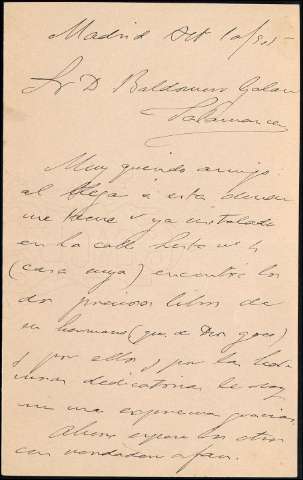 Madrid Oct 10/915
Sr D Baldomero Galan
Salamanca
Muy querido amigo
al llegar á esta donde
me tiene V ya instalado
en la calle
(casa suya) encontré los
dos preciosos libros de
su hermano (que de Dios goce)
y por ellos y por las
dedicatorias le doy
mis mas expresivas gracias
Ahora espero los otros
con verdadero afan.